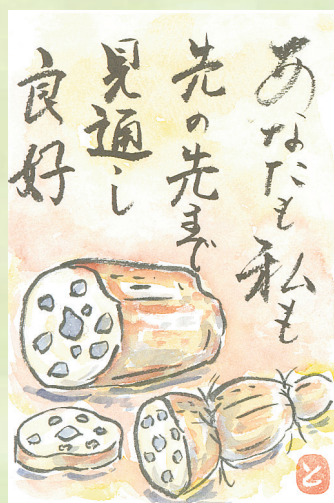 あなたも私も
先の先まで
見通し
良好
と